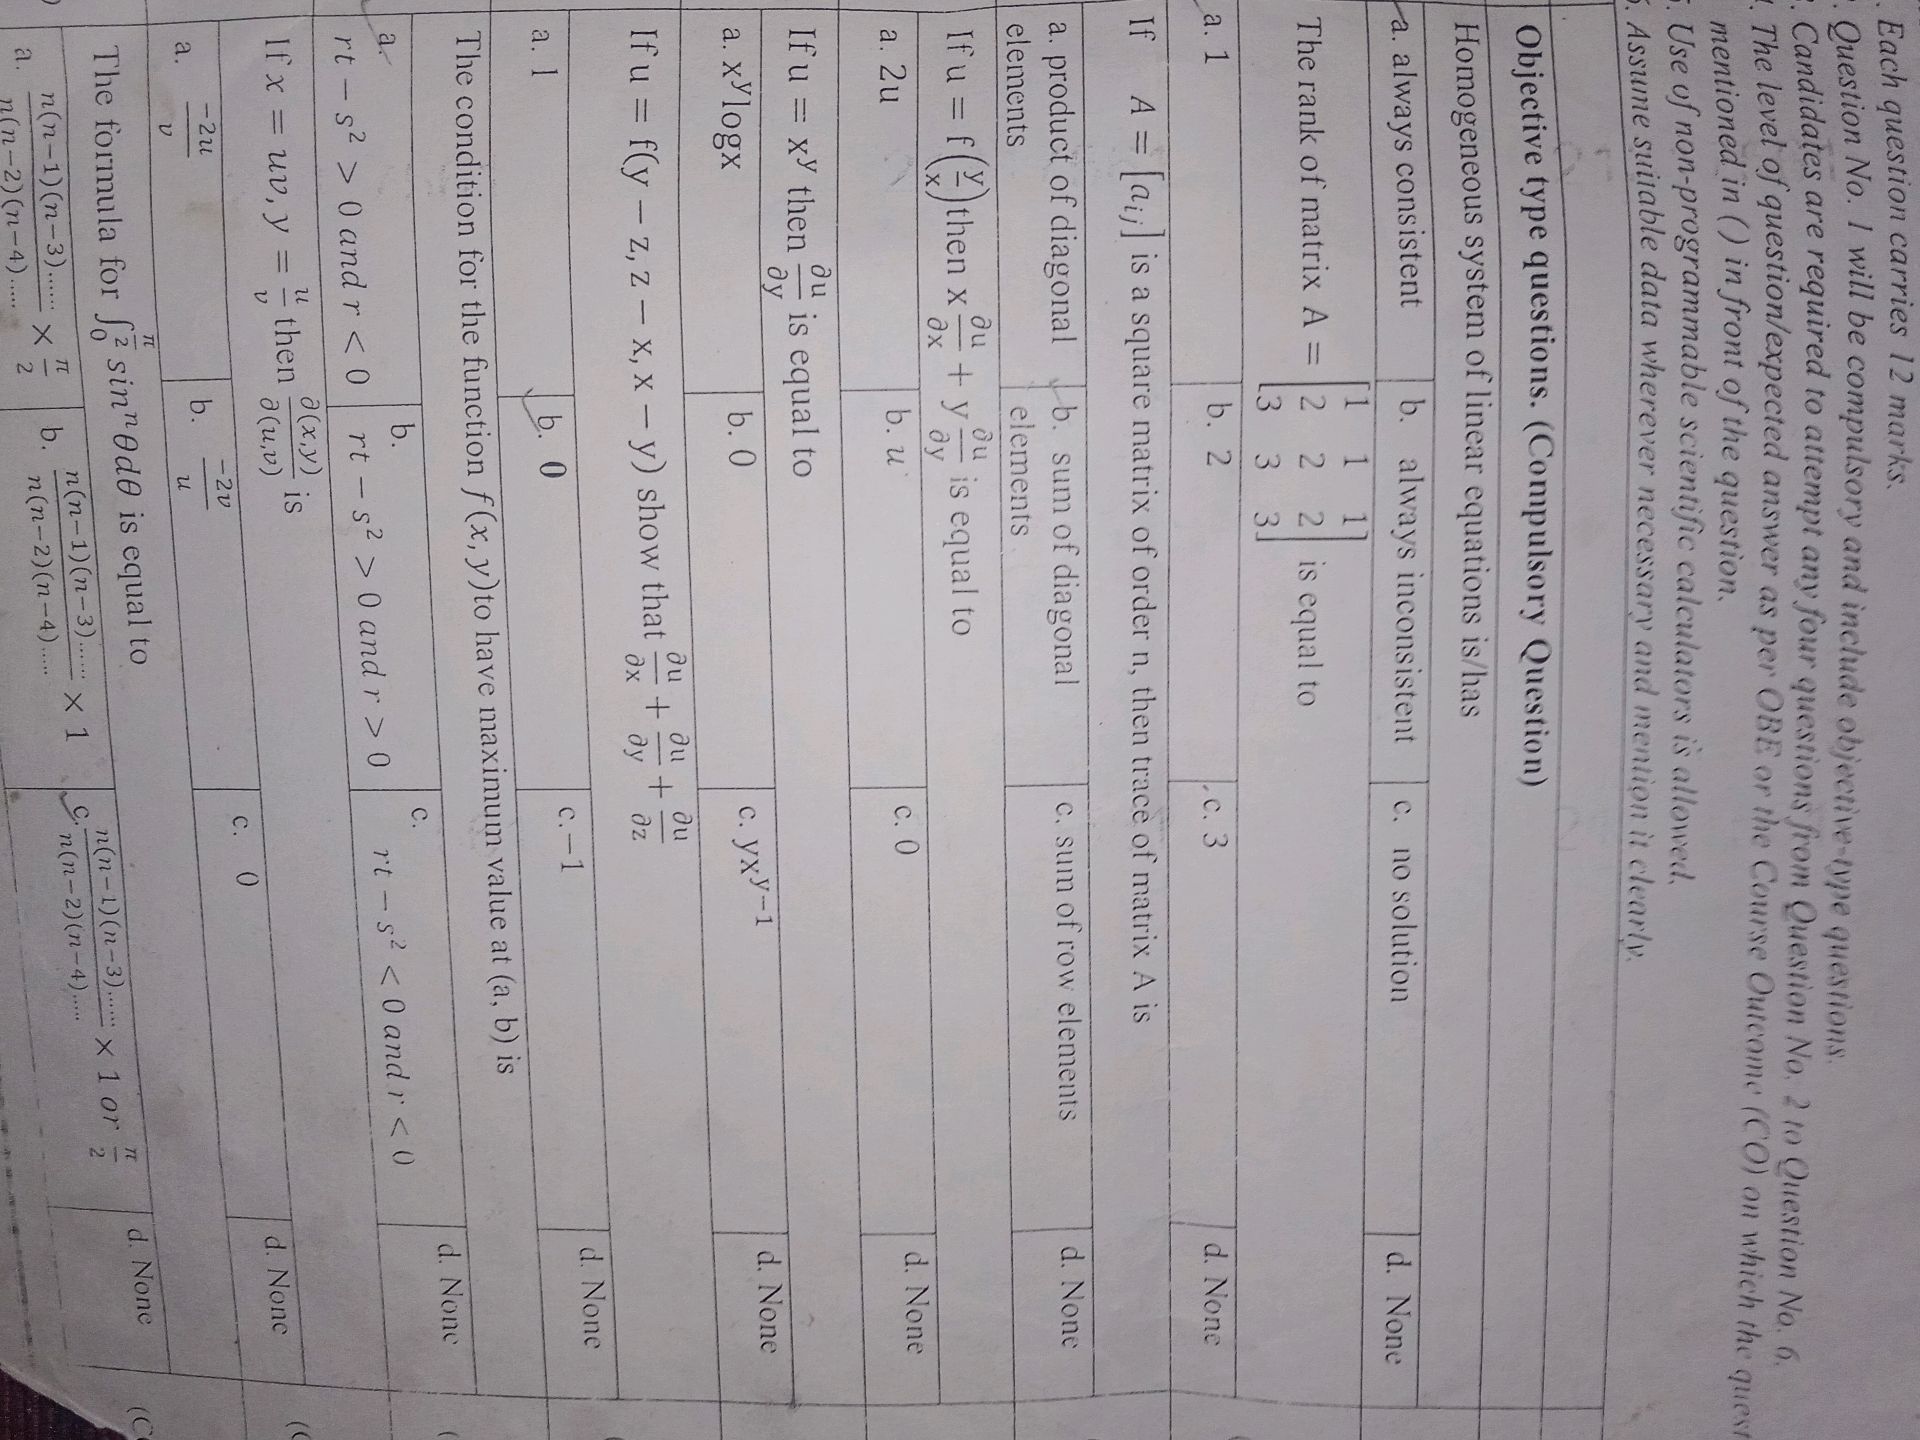 . Each question carries 12 marks.
. Question No. 1 will be compulsory and include objective-type questions.
. Candidates are required to attempt any four questions from Question No. 2 to Question No. 6.
. The level of question/expected answer as per OBE or the Course Outcome (CO) on which the quest
mentioned in () in front of the question.
. Use of non-programmable scientific calculators is allowed.
. Assume suitable data wherever necessary and mention it clearly.
Objective type questions. (Compulsory Question)
Homogeneous system of linear equations is/has
a. always consistent b. always inconsistent c. no solution d. None
The rank of matrix A = [1 1 1; 2 2 2; 3 3 3] is equal to
a. 1 b. 2 c. 3 d. None
If A = [a_{ij}] is a square matrix of order n, then trace of matrix A is
a. product of diagonal elements b. sum of diagonal elements c. sum of row elements d. None
If u = f(y/x) then x ∂u/∂x + y ∂u/∂y is equal to
a. 2u b. u c. 0 d. None
If u = x^y then ∂u/∂y is equal to
a. x^y logx b. 0 c. yx^{y−1} d. None
If u = f(y − z, z − x, x − y) show that ∂u/∂x + ∂u/∂y + ∂u/∂z
a. 1 b. 0 c. −1 d. None
The condition for the function f(x, y)to have maximum value at (a, b) is
a. rt − s² > 0 and r < 0 b. rt − s² > 0 and r > 0 c. rt − s² < 0 and r < 0 d. None
If x = uv, y = u/v then ∂(x,y)/∂(u,v) is
a. −2u/v b. −2v/u c. 0 d. None
The formula for ∫_0^{π/2} sin^n θdθ is equal to
a. n(n−1)(n−3)....../n(n−2)(n−4)..... × π/2 b. n(n−1)(n−3)....../n(n−2)(n−4)..... × 1 c. n(n−1)(n−3)....../n(n−2)(n−4)..... × 1 or π/2 d. None